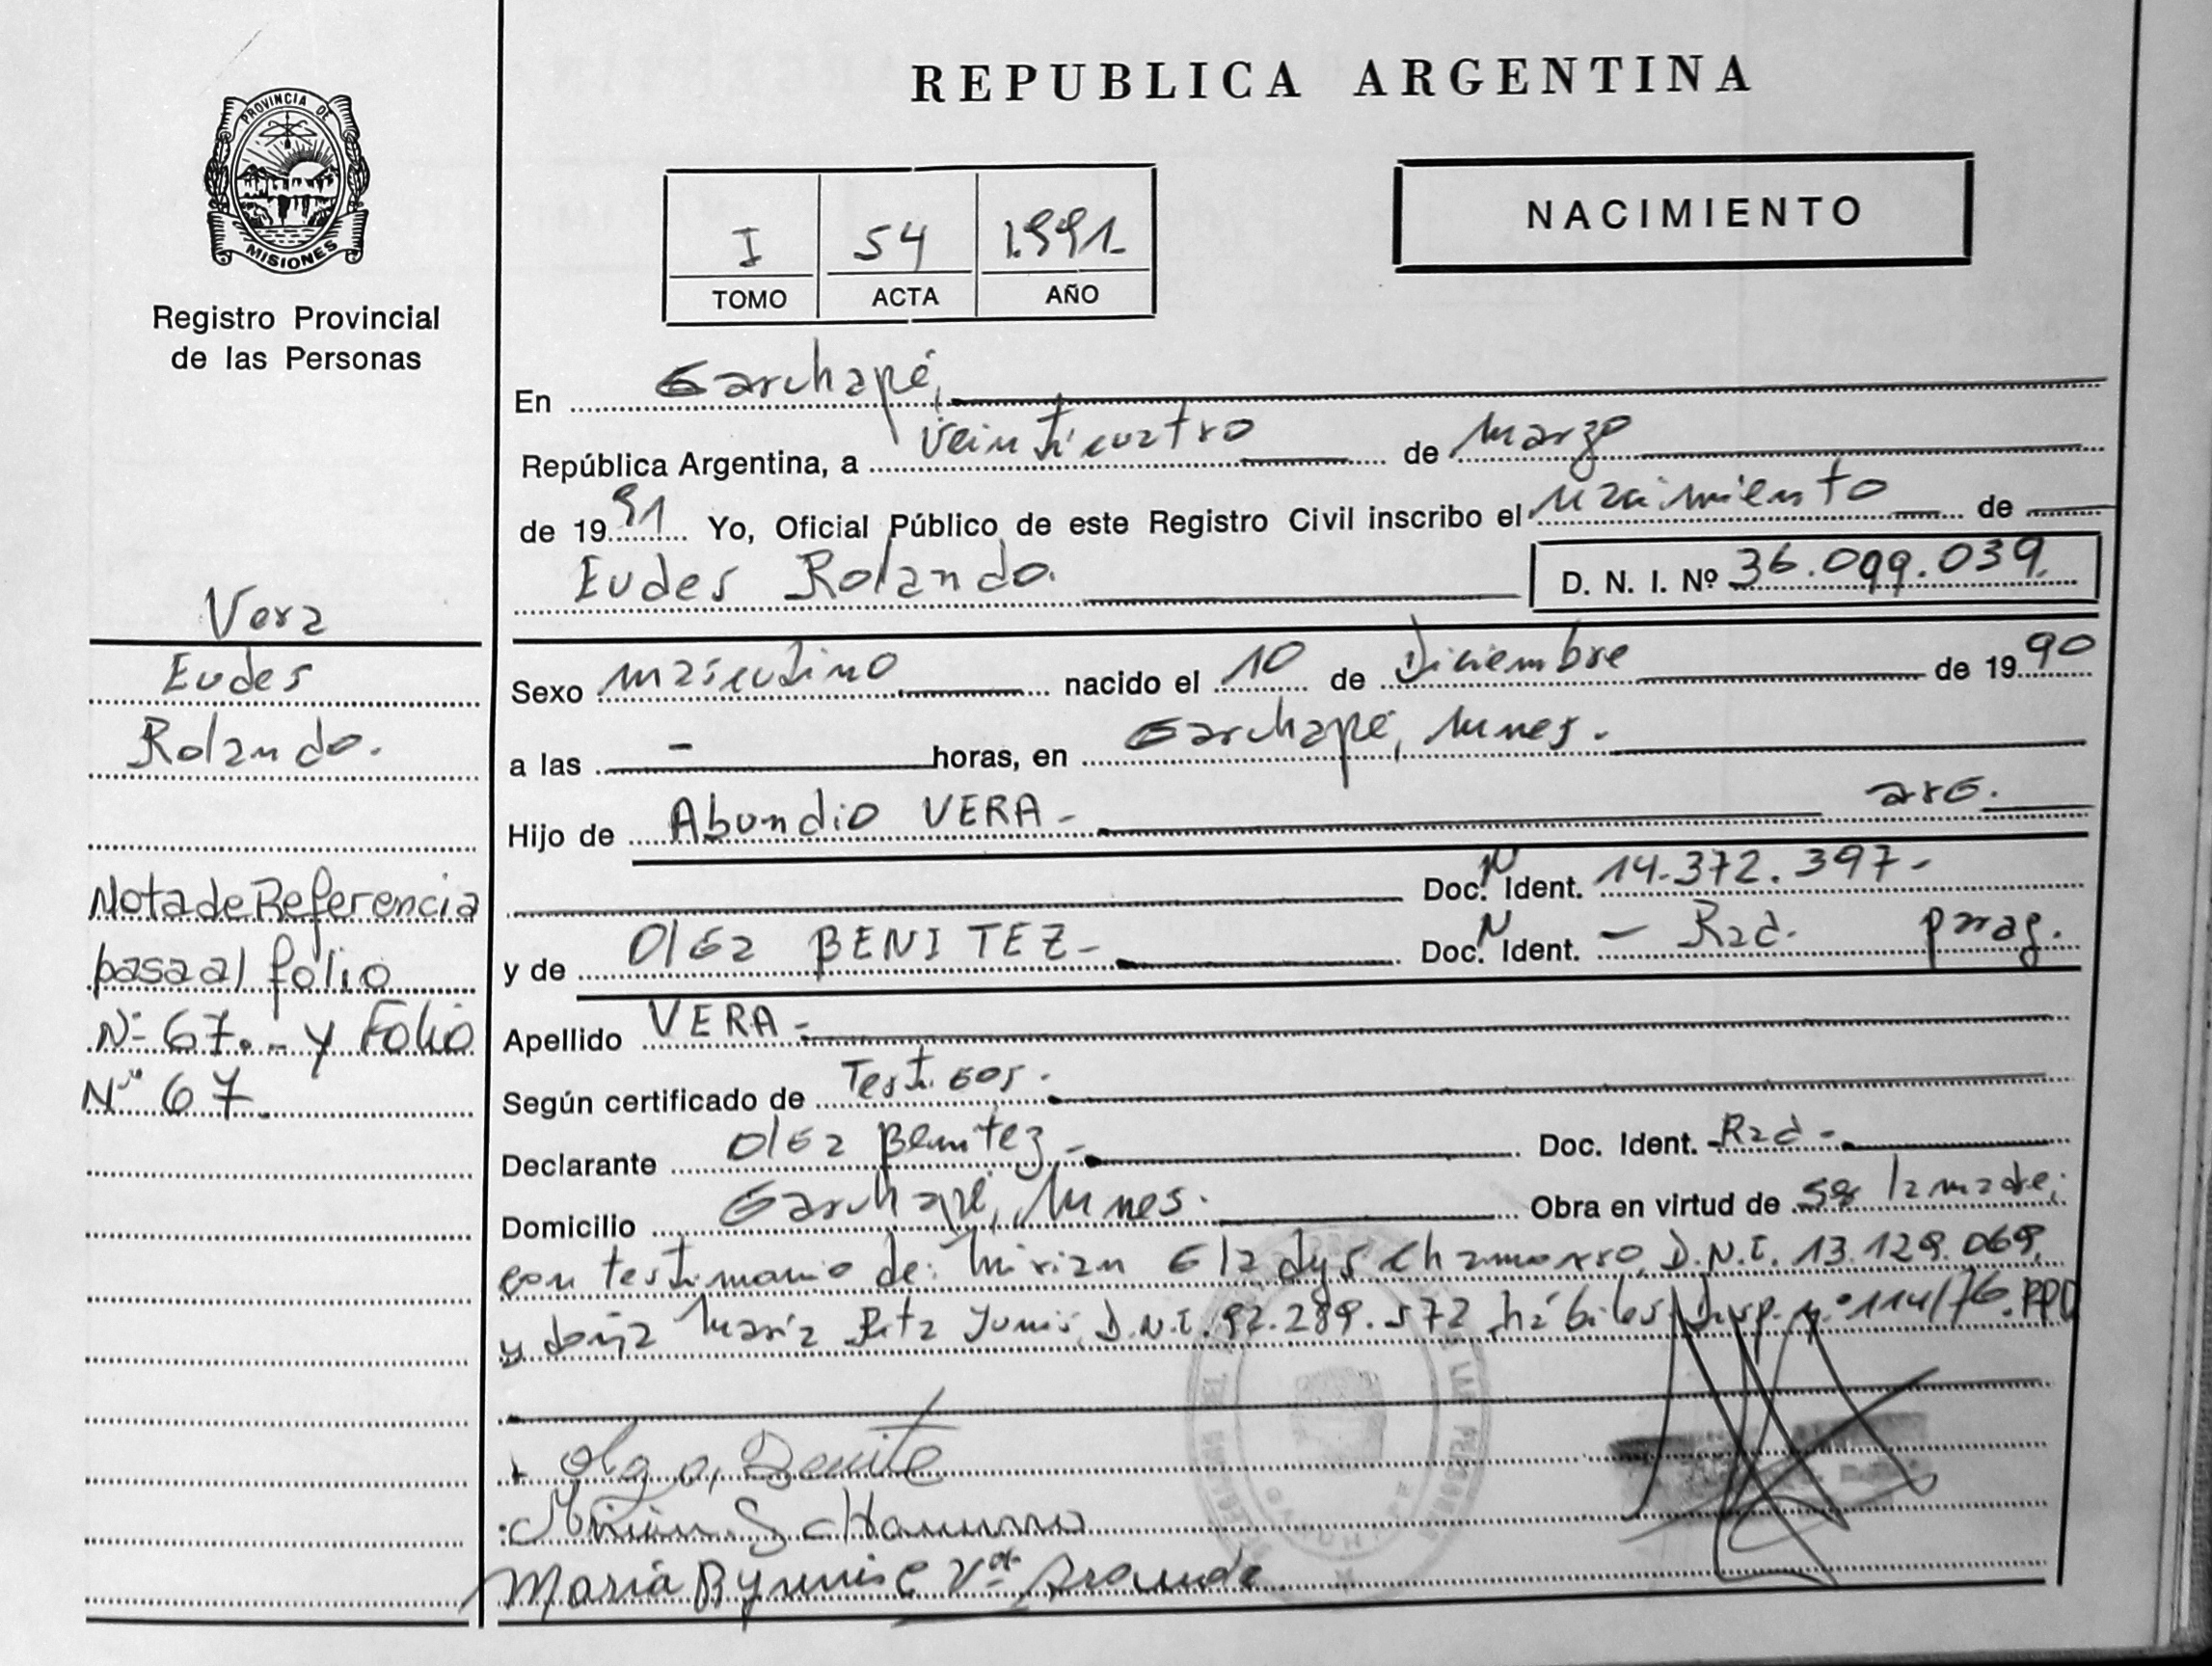 REPUBLICA ARGENTINA
PROVINCIA DE
MISIONES
Registro Provincial
de las Personas
NACIMIENTO
I 54 1.991.
TOMO ACTA AÑO
En Garuhapé,
República Argentina, a veinticuatro de marzo
de 1991 Yo, Oficial Público de este Registro Civil inscribo el nacimiento de
Eudes Rolando. D. N. I. Nº 36.099.039.
Vera
Eudes
Rolando.
Sexo masculino nacido el 10 de Diciembre de 1990
a las - horas, en Garuhapé, Mnes.
Hijo de Abundio VERA - arg.
Doc. N Ident. 14.372.397-
y de Olga BENITEZ- Doc. N Ident. - Rad. parag.
Apellido VERA-
Según certificado de Testigos.
Declarante Olga Benitez - Doc. Ident. Rad-
Domicilio Garuhapé, Mnes. Obra en virtud de ser la madre;
con testimonio de: Mirian Gladys Chamorro, D.N.I. 13.129.069,
y doña María Rita Yunis, D.N.I. 92.289.572 hábiles, Disp. nº 114/76. RPP
Nota de Referencia
pasa al folio
Nº 67.- y Folio
Nº 67.
Olga Benite
Mirian G Chamorro
María R Yunis